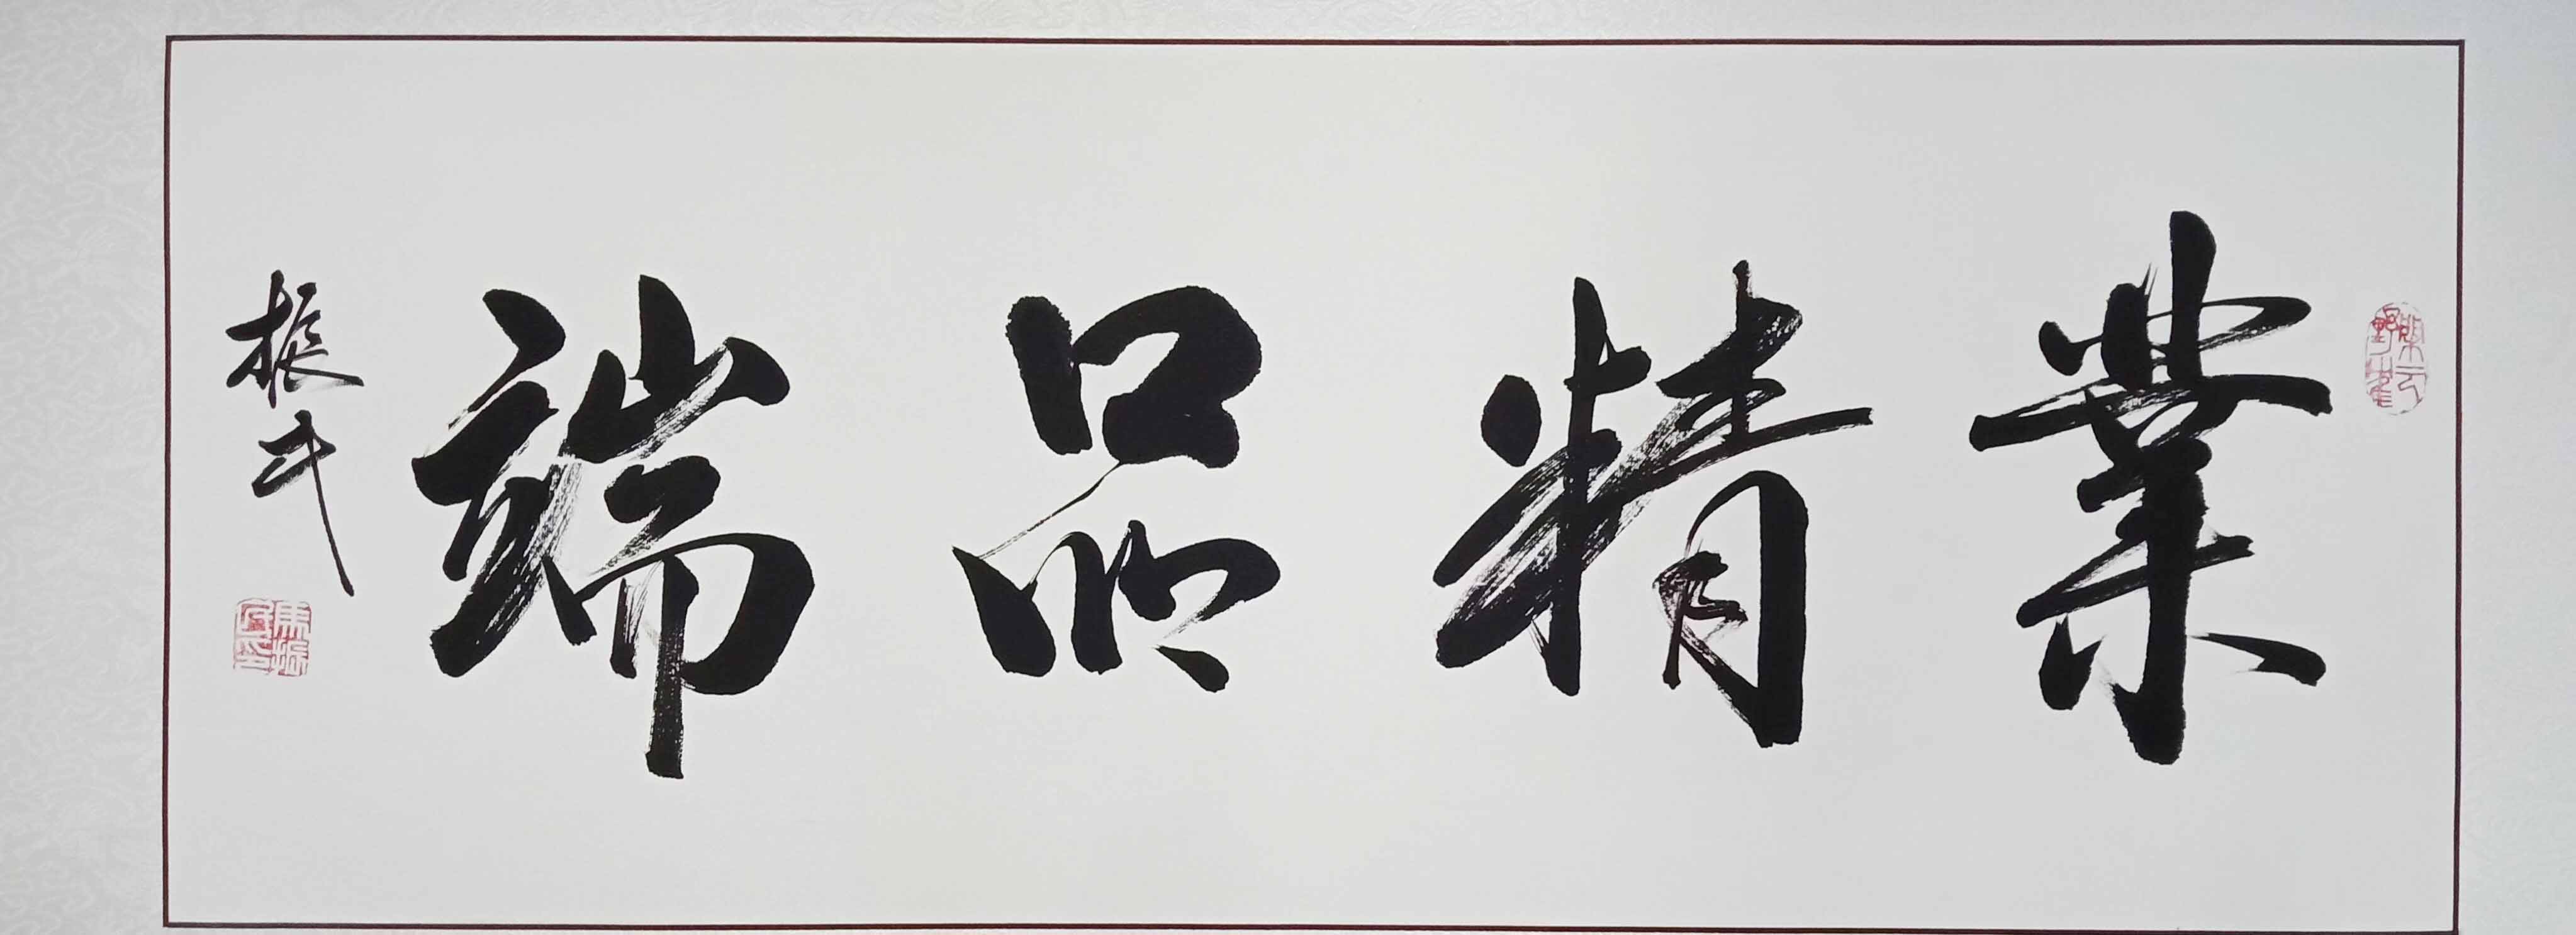 業精品端
振斗